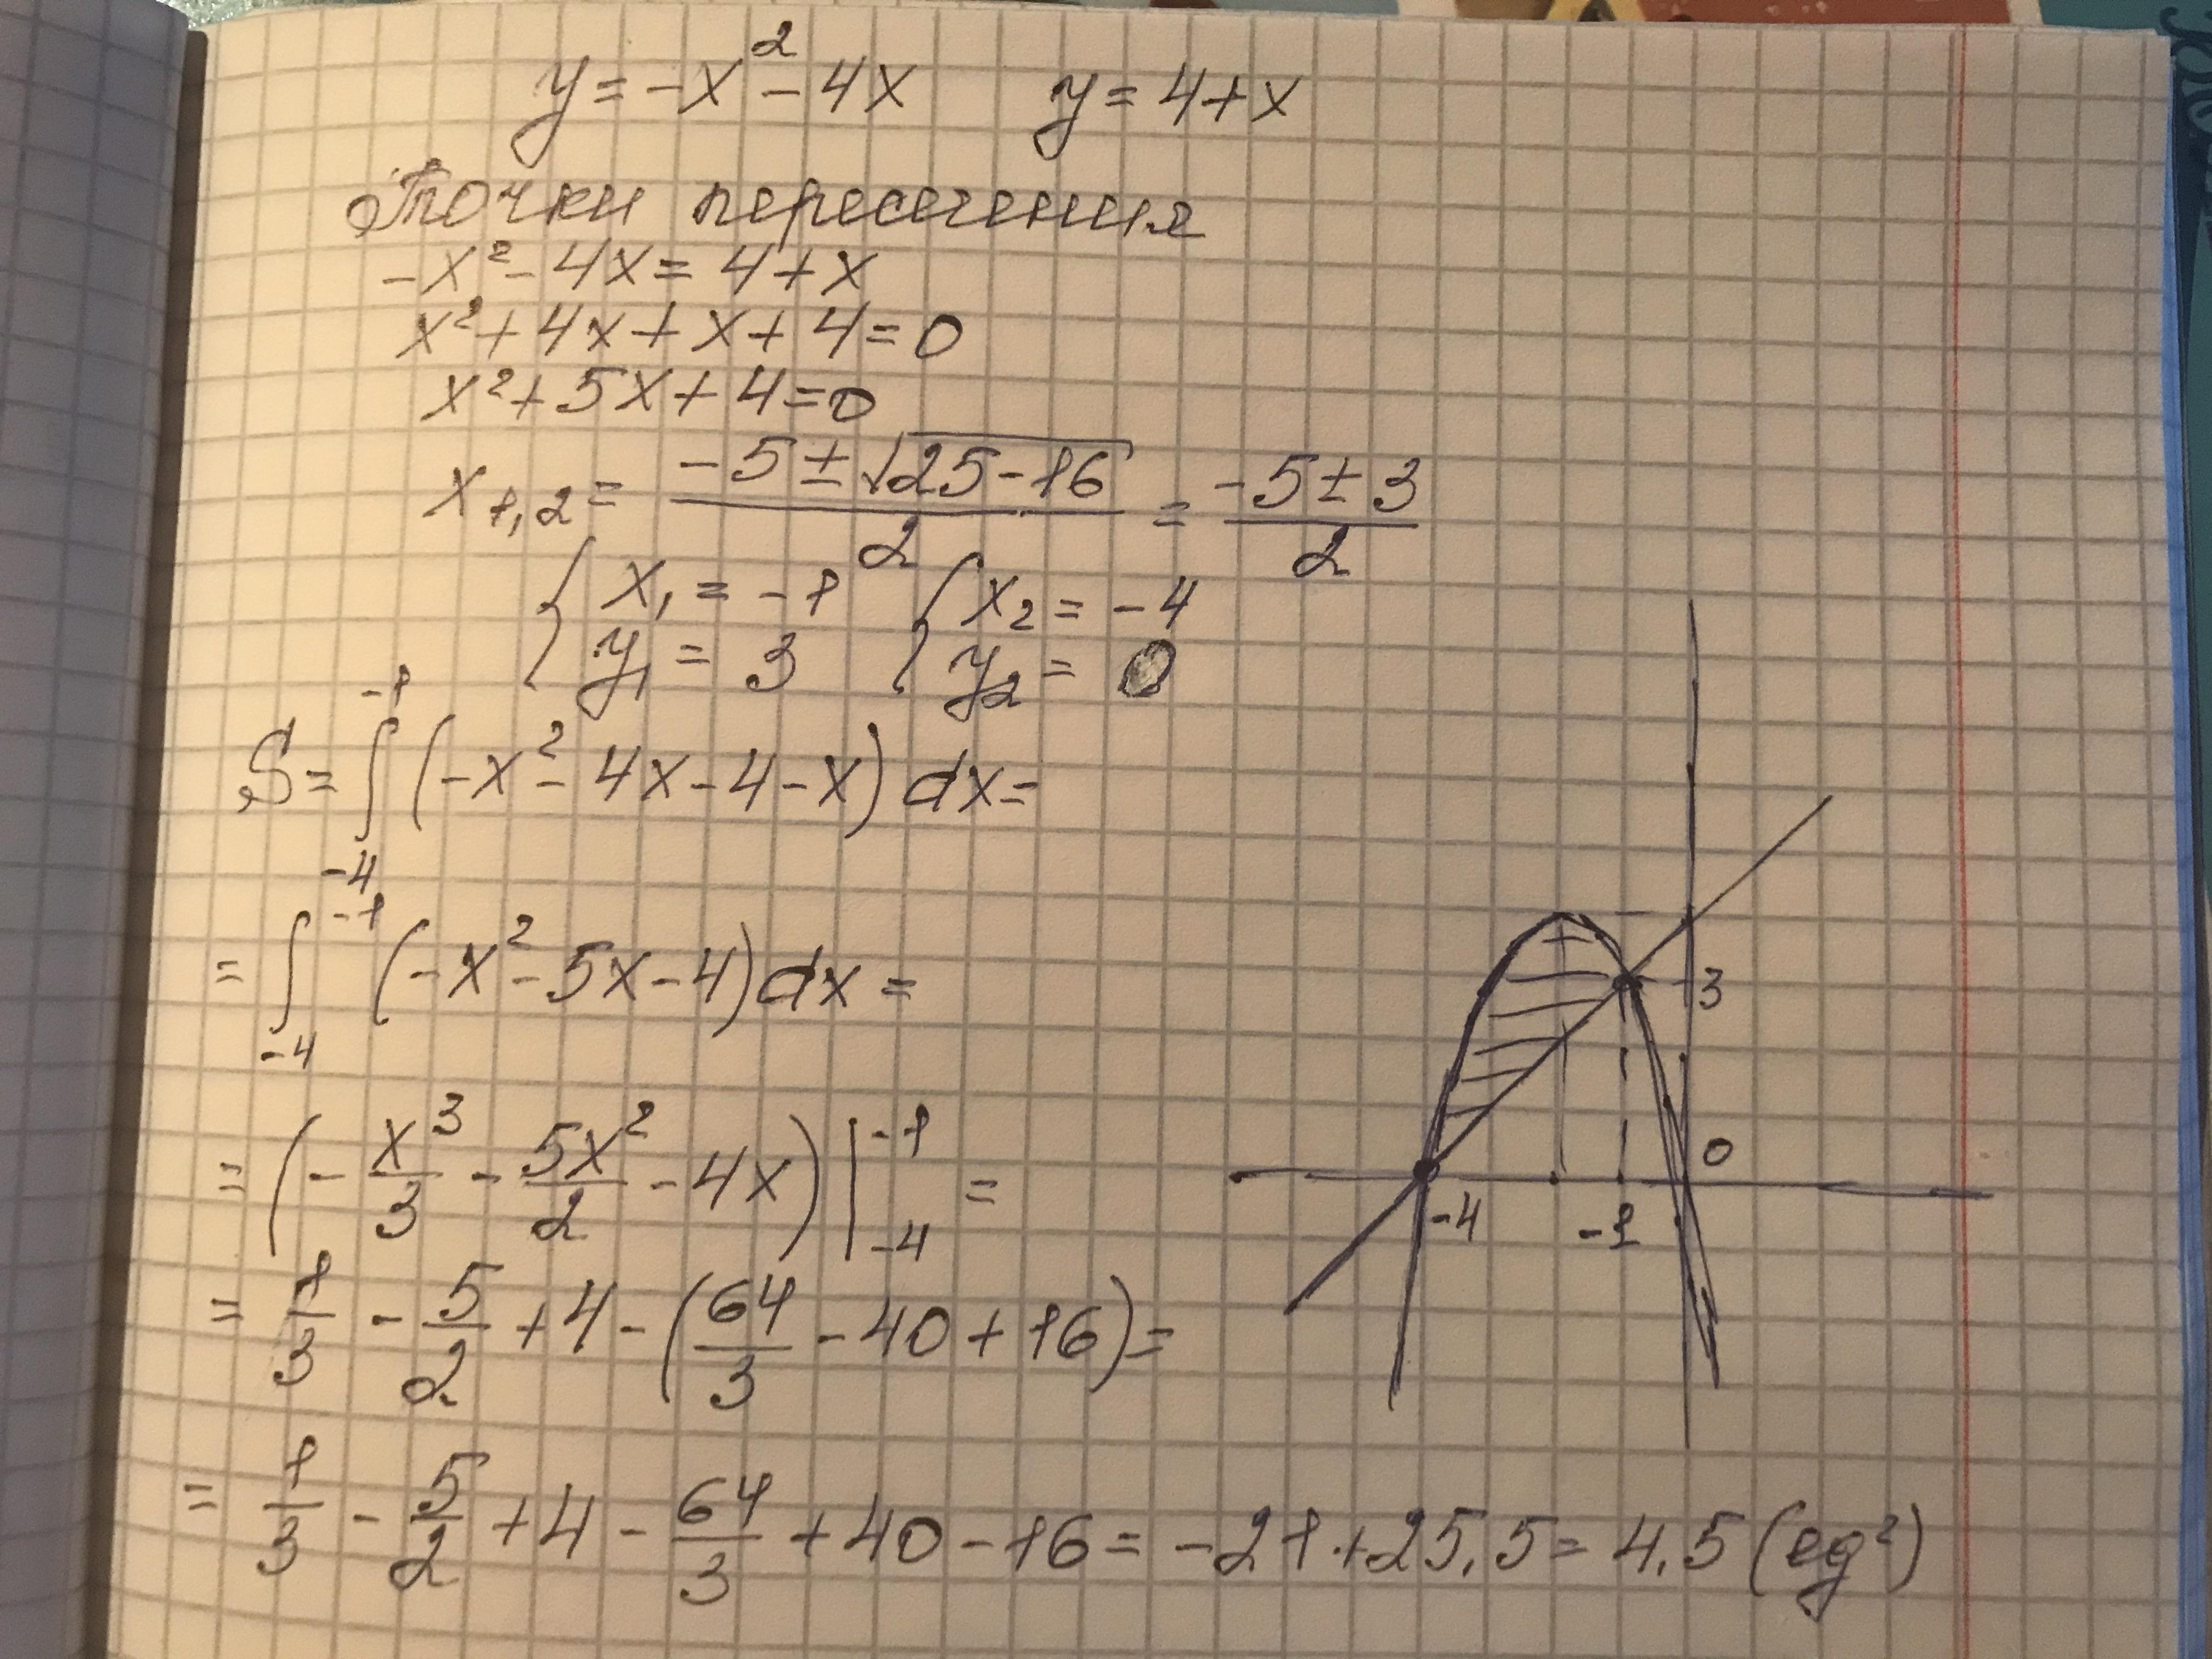 y = -x² - 4x   y = 4 + x
Точки пересечения
-x² - 4x = 4 + x
x² + 4x + x + 4 = 0
x² + 5x + 4 = 0
x₁,₂ = (-5 ± √(25 - 16))/2 = (-5 ± 3)/2
{ x₁ = -1   { x₂ = -4
{ y₁ = 3   { y₂ = 0
S = ∫₋₄⁻¹ (-x² - 4x - 4 - x) dx =
= ∫₋₄⁻¹ (-x² - 5x - 4) dx =
= (-x³/3 - 5x²/2 - 4x) |₋₄⁻¹ =
= 1/3 - 5/2 + 4 - (64/3 - 40 + 16) =
= 1/3 - 5/2 + 4 - 64/3 + 40 - 16 = -21 + 25.5 = 4.5 (ед²)
3
0
-4   -1